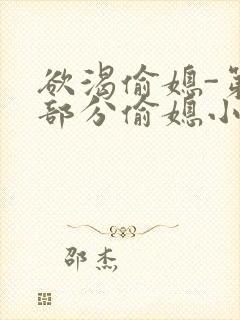 欲渴偷媳-第
部分偷媳小
邵杰